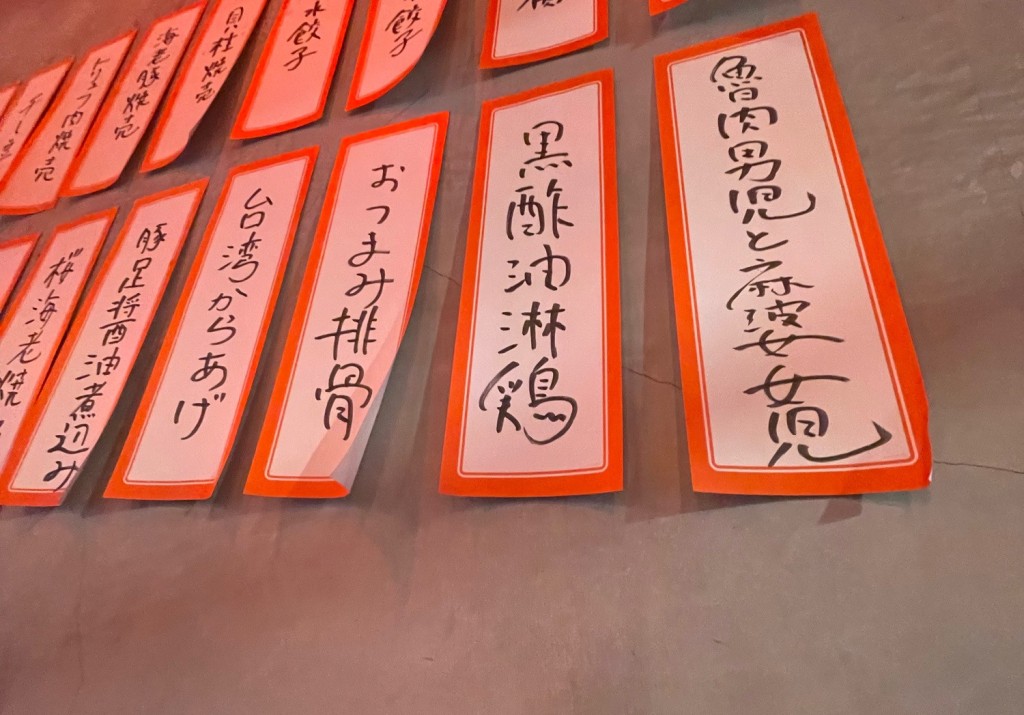 水餃子
貝柱焼売
海老豚焼売
トリュフ肉焼売
魯肉男児と麻婆女児
黒酢油淋鶏
おつまみ排骨
台湾からあげ
豚足将酉油煮込み
桜海老焼